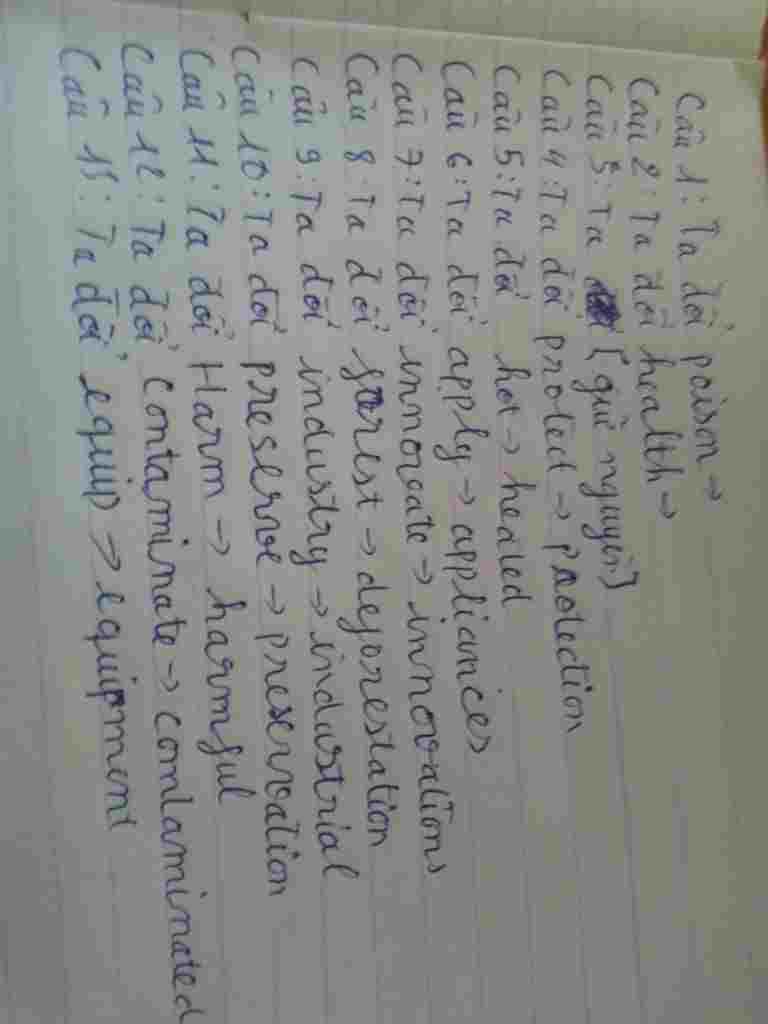 Câu 1: Ta đổi poison →
Câu 2: Ta đổi health →
Câu 3: Ta [giữ nguyên]
Câu 4: Ta đổi protect → protection
Câu 5: Ta đổi hot → heated
Câu 6: Ta đổi apply → appliances
Câu 7: Ta đổi innovate → innovations
Câu 8: Ta đổi forest → deforestation
Câu 9: Ta đổi industry → industrial
Câu 10: Ta đổi preserve → preservation
Câu 11: Ta đổi Harm → harmful
Câu 12: Ta đổi Contaminate → comtaminated
Câu 13: Ta đổi equip → equipment